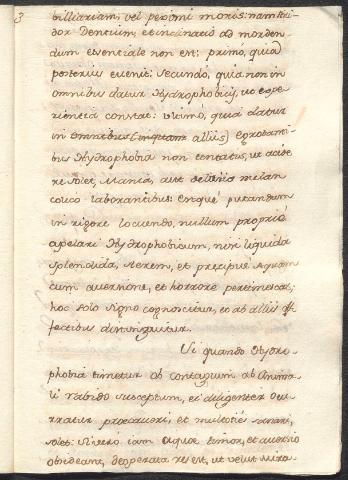 3
billiariam, vel pessimi moris: nam stri-
dor Dentium, et inclinatio ad morden-
dum essenciale non est: primó, quia
posterius evenit: secundo, quia non in
omnibus datur Hydrophobijs, ut expe-
rientia constat: ultimo, quia datur
in omnibus (inquam alliis) Egrotanti-
bus Hydrophobia non tentatis, ut acide-
re solet, Mania, aut delirio melan
colico laborantibus: estque putandum
in rigore loquendo, nullum propriè
apelari Hydrophobicum, nisi liquida
splendida, et precipuè Aquam
cum aversione, et horrore pertimescat;
hoc solo signo cognoscitur, et ab alliis af-
fectibus distinguitur.
Ut quando Hydro-
phobia timetur ob contagium ab Anima-
li rabido susceptum, ei diligenter ocu-
rratur precaveri, et multotiès sanari,
solet: si vero iam aquae timor, et aversio
obsideant, desperata res est, ut velut mira-